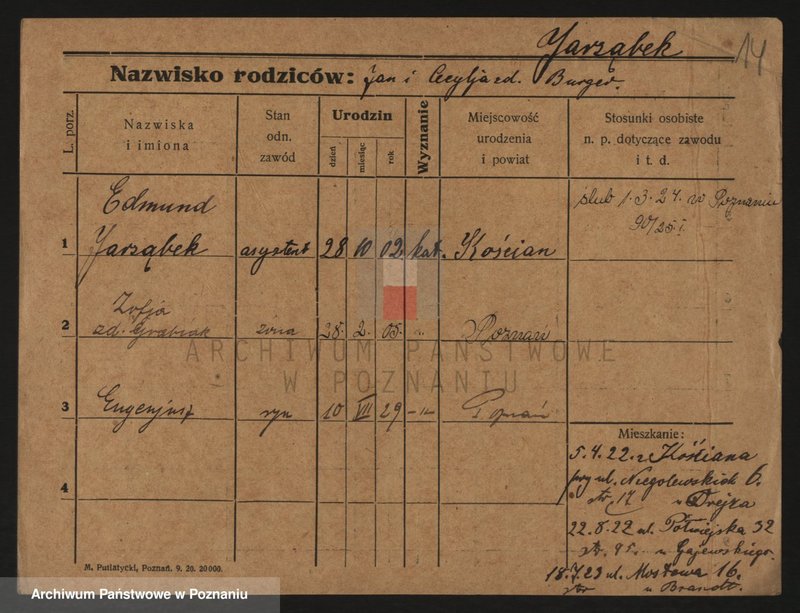 Jarząbek 14
Nazwisko rodziców: Jan i Cecylja zd.
L. porz.
Nazwiska
i imiona
Stan
odn.
zawód
Urodzin
dzień
miesiąc
rok
Wyznanie
Miejscowość
urodzenia
i powiat
Stosunki osobiste
n. p. dotyczące zawodu
i t. d.
1 Edmund
Jarząbek asystent 28 10 02. kat. Kościan
ślub 1.3.24. w Poznaniu
90/25 I
2 Zofja
zd. żona 28. 2. 05. " Poznań
3 Eugenjusz syn 10 VII 29 -"- Poznań
4
Mieszkanie:
5.4.22. z Kościana
przy ul. Niegolewskich 6.
str. 17 u Drejza
22.8.22 ul. Półwiejska 32
str. u Gajewskiego.
18.7.23 ul. Mostowa 16.
str u Brandt.
M. Putiatycki, Poznań. 9. 20. 20000.
ARCHIWUM PAŃSTWOWE
W POZNANIU
Archiwum Państwowe w Poznaniu